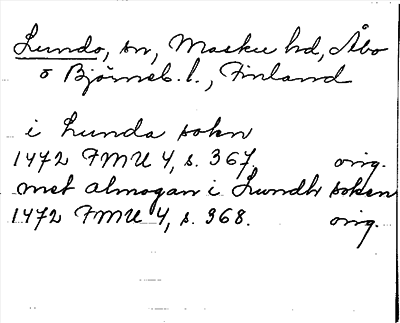 Lundo, sn, Masku hd, Åbo
o Björneb. l., Finland
i Lunda sokn
1472 FMU 4, s. 367. orig.
met almogan i Lwndh soken
1472 FMU 4, s. 368. orig.